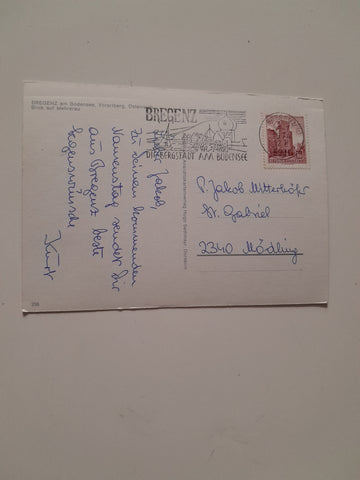 BREGENZ am Bodensee, Vorarlberg, Österreich
Blick auf Mehrerau
BREGENZ
AM BODENSEE
Lieber Jakob,
Zu Deinem kommenden
Namenstag sendet Dir
aus Bregenz beste
Segenswünsche
Kurt
P. Jakob Mitterhöfer
St. Gabriel
2340 Mödling